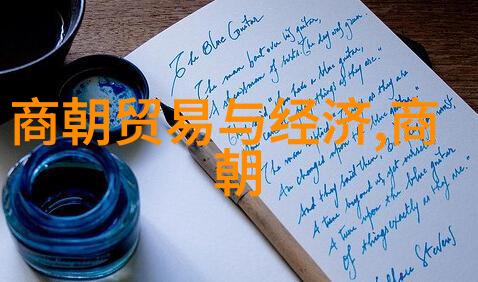 The Blue Guitar
The man bent over his guitar,
A shearsman of sorts. The day was green.
have a blue guitar,
things as they are."
商朝贸易与经济,商
朝
The man as they are
changed upon the blue guitar."
And they said then, must,
A tune beyond us, yet ourselves,
A tune upon the blue guitar
Of things exactly as they are."
Wallace Stevens